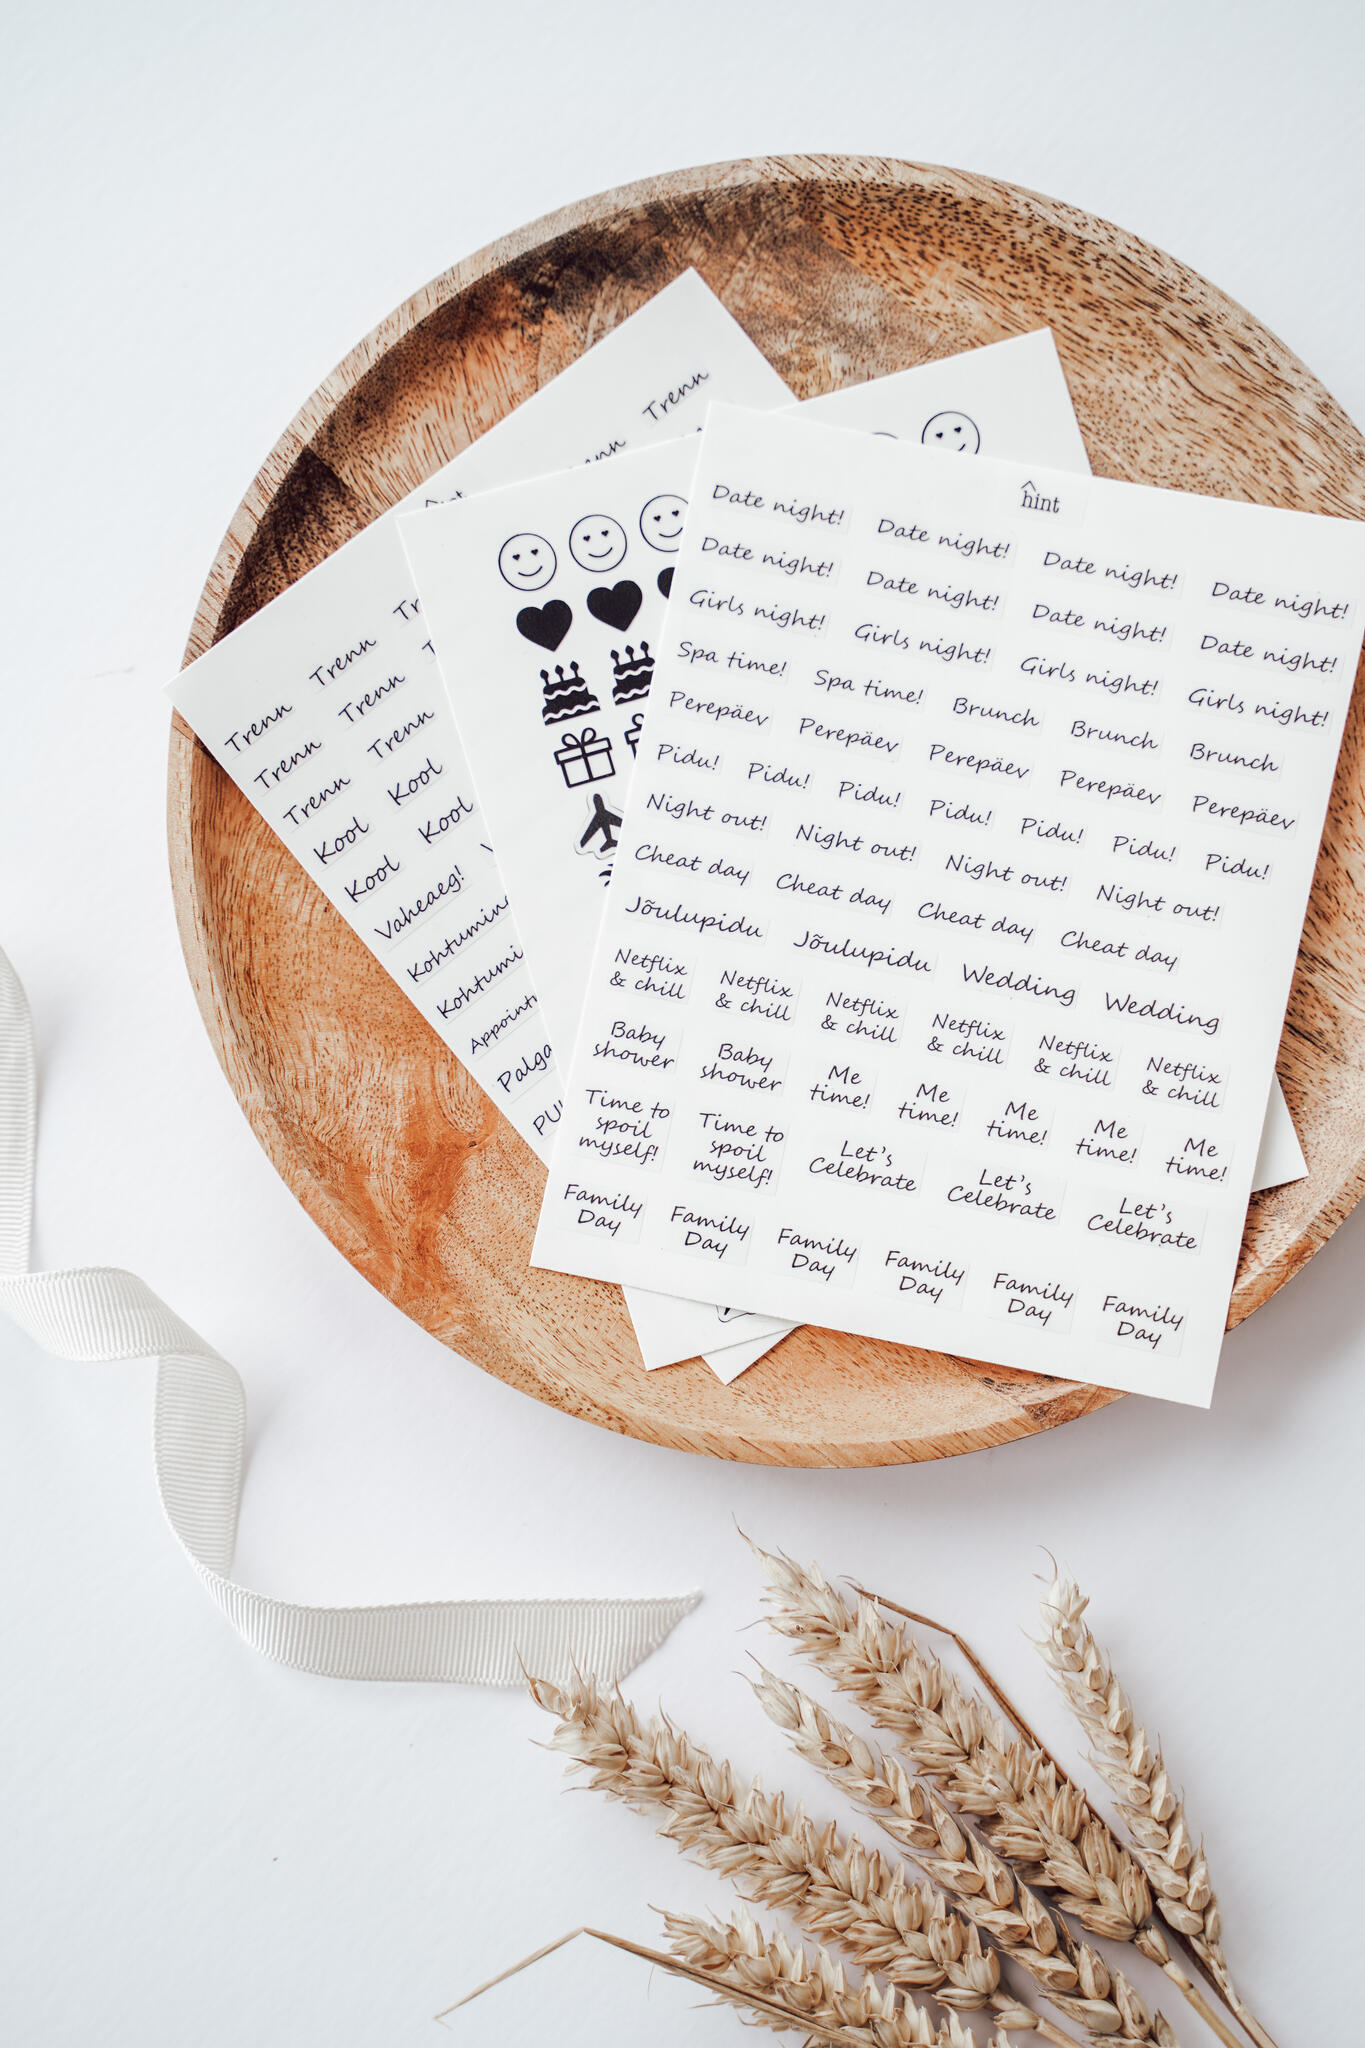 hint
Date night! Date night! Date night! Date night!
Date night! Date night! Date night! Date night!
Girls night! Girls night! Girls night! Girls night!
Spa time! Spa time! Brunch Brunch Brunch
Perepäev Perepäev Perepäev Perepäev Perepäev
Pidu! Pidu! Pidu! Pidu! Pidu! Pidu! Pidu!
Night out! Night out! Night out! Night out!
Cheat day Cheat day Cheat day Cheat day
Jõulupidu Jõulupidu Wedding Wedding
Netflix Netflix Netflix Netflix Netflix Netflix
& chill & chill & chill & chill & chill & chill
Baby Baby Me Me Me Me Me
shower shower time! time! time! time! time!
Time to Time to Let's Let's Let's
spoil spoil Celebrate Celebrate Celebrate
myself! myself!
Family Family Family Family Family Family
Day Day Day Day Day Day
Trenn
Trenn Trenn
Trenn Trenn
Trenn Trenn
Kool Kool
Kool Kool
Vaheaeg!
Kohtumin
Kohtumi
Appoint
Palga